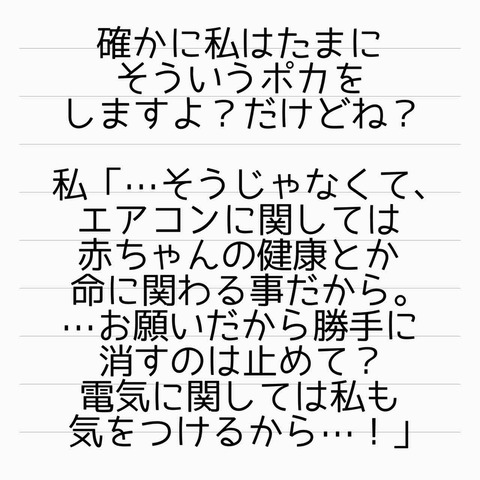 確かに私はたまに
そういうポカを
しますよ？だけどね？
私「…そうじゃなくて、
エアコンに関しては
赤ちゃんの健康とか
命に関わる事だから。
…お願いだから勝手に
消すのは止めて？
電気に関しては私も
気をつけるから…！」